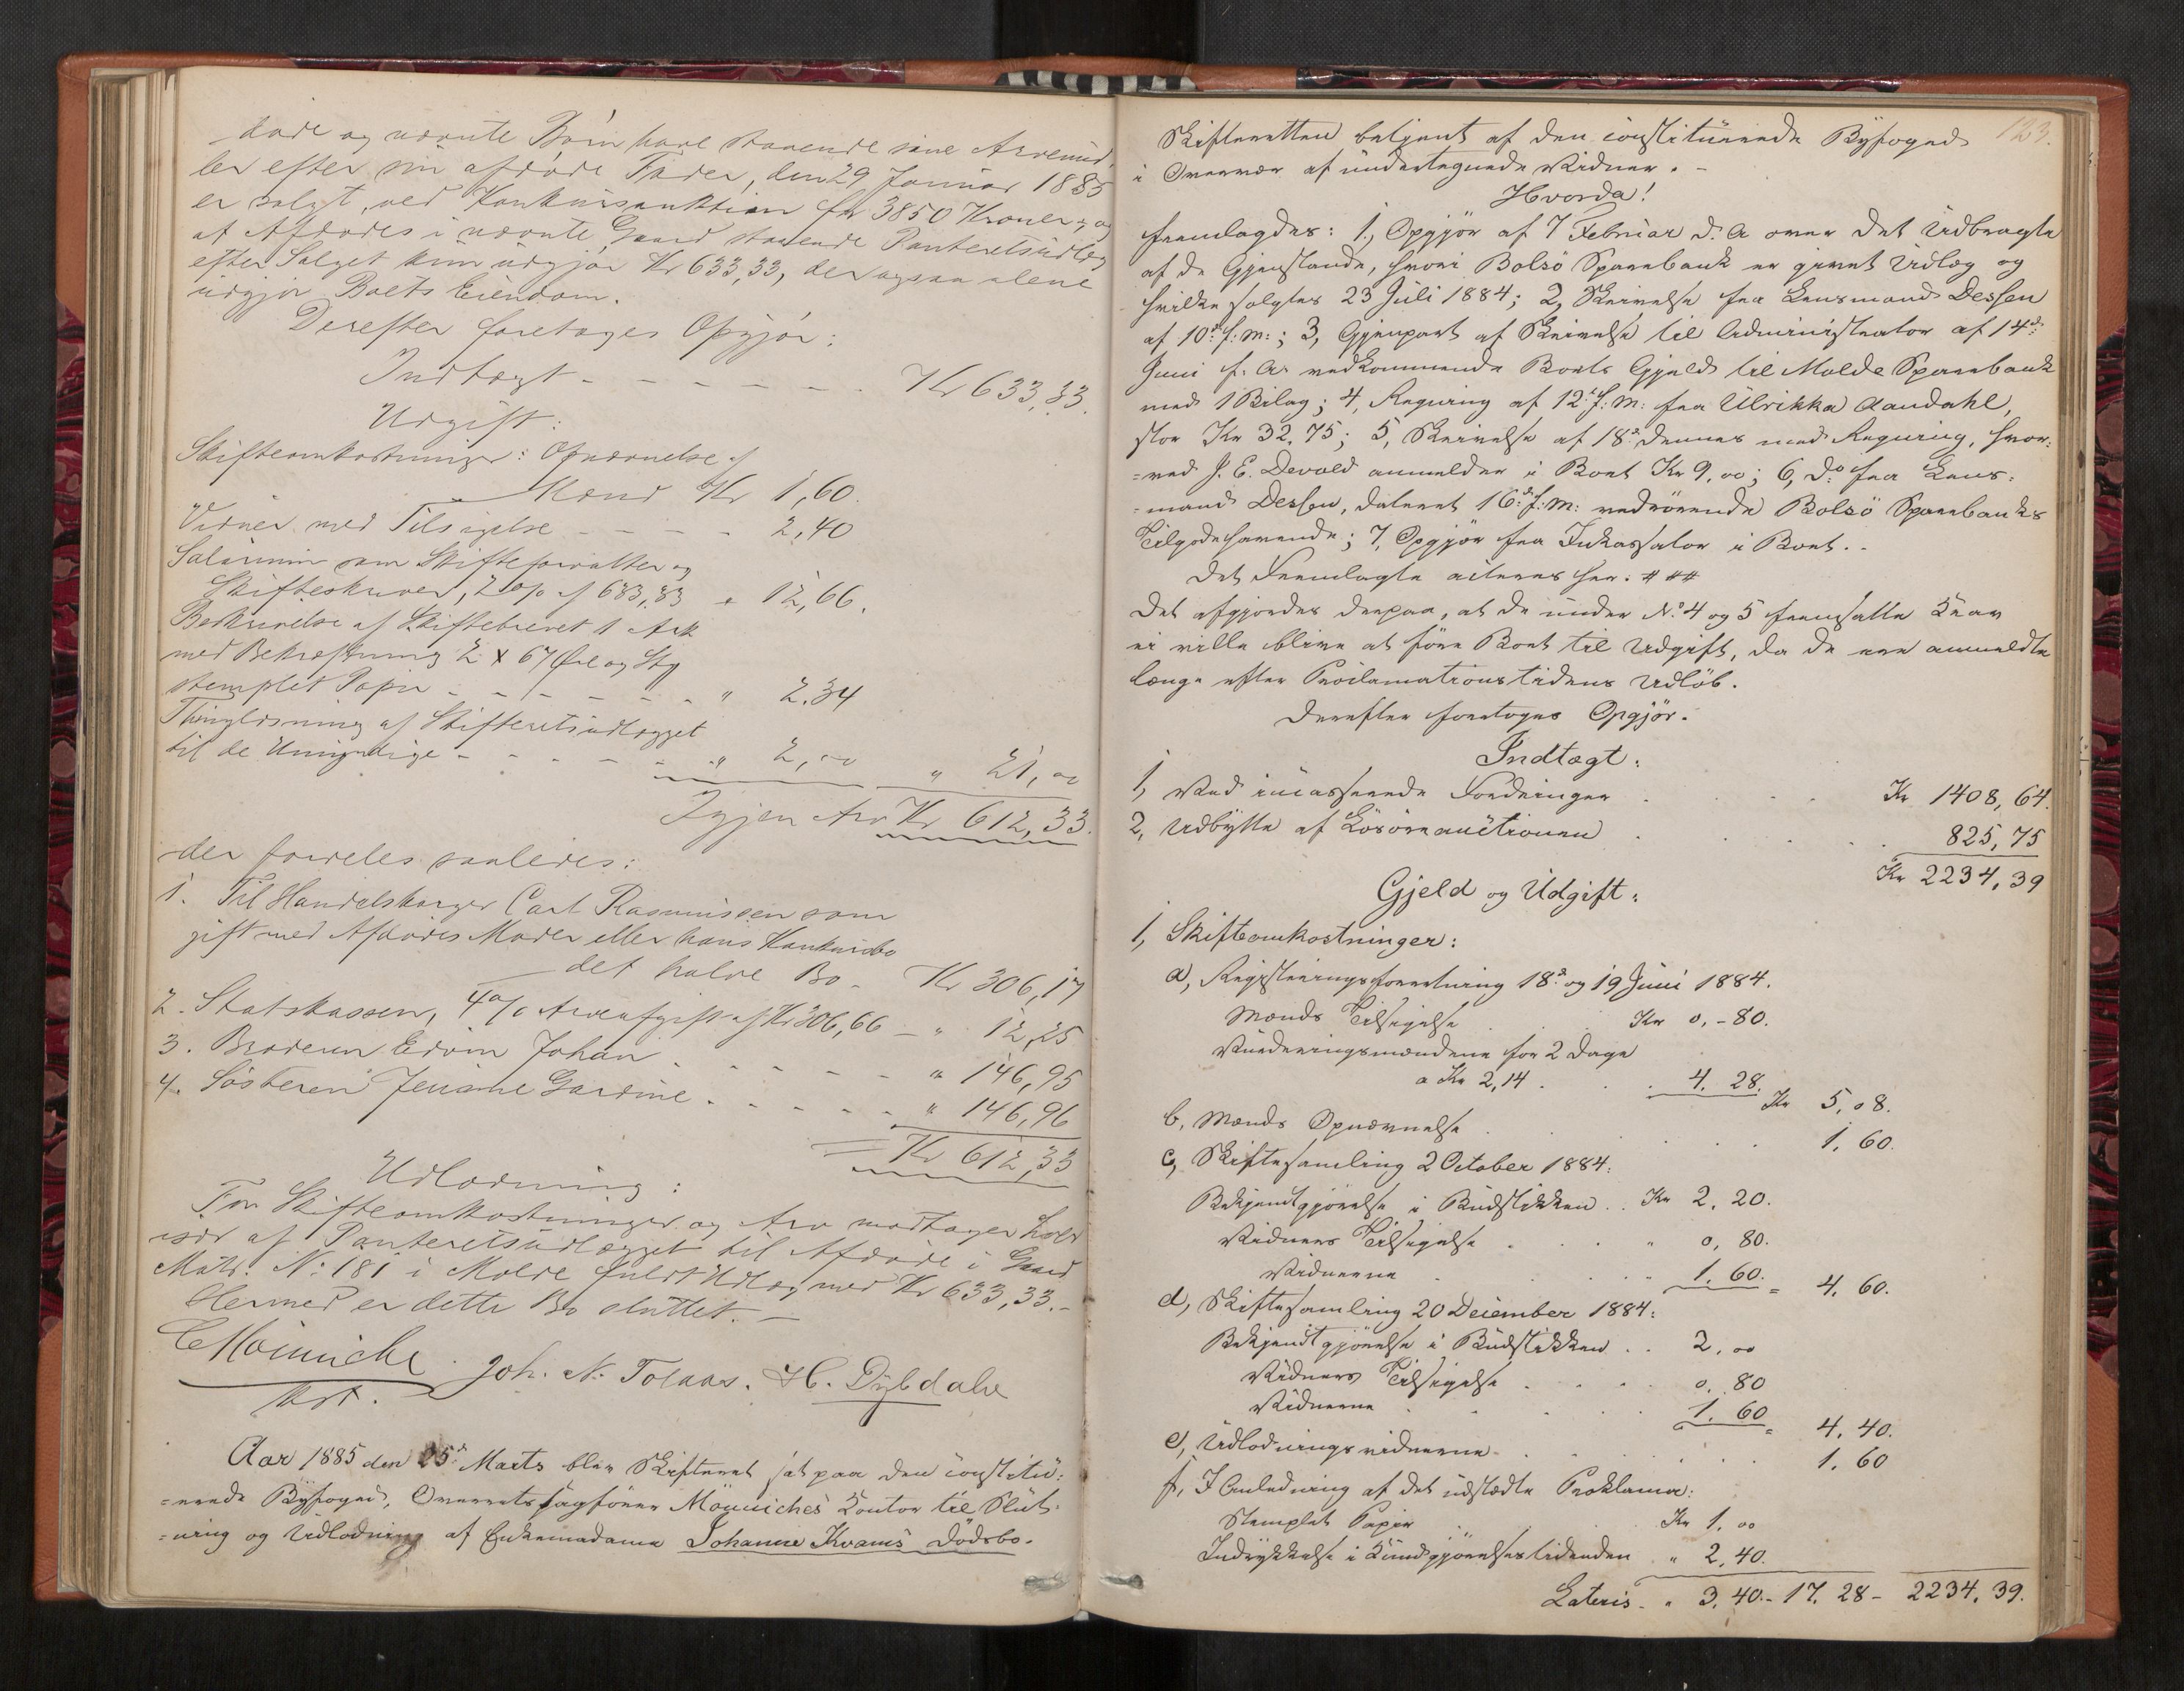 døde og nævnte Børn have staaende sine Arvemid,
ler efter sin afdøde Fader, den 29 Januar 1885
er solgt, ved Konkursauktion for 3850 Kroner, og
at Afdødes i nævnte Gaard staaende Panteretsudlæg
efter Salget kun udgjør Kr 633,33, der ogsaa alene
udgjør Boets Eiendom.
Derefter foretoges Opgjør:
Indtægt - - - - - - Kr 633,33.
Udgift:
Skifteomkostninger: Opnævnelse af
Mænd Kr 1,60.
Vidner med Tilsigelse - - - - 2,40
Salarium som Skifteforvalter og
Skifteskriver, 2 o/o af 633,33 " 12,66.
Beskrivelse af Skiftebrevet 1 Ark
med Bekræftning 2 x 67 Øre og
stemplet Papir - - - - - - - " 2.34
Thinglæsning af Skifteretsudlægget
til de Umyndige - - - - - " 2,00 " 21,00
Igjen Arv Kr 612,33.
der fordeles saaledes:
1. Til Handelsborger Carl Rasmussen som
gift med Afdødes Moder eller hans Konkursbo
det halve Bo - Kr 306,17
2. Statskassen, 4 o/o Arveafgift af Kr 306,66 - " 12,25
3. Broderen Edvin Johan - - - - - " 146,95
4. Søsteren Jensine Gardine - - - - - " 146,96
Kr 612,33
Udlodning:
For Skifteomkostninger og Arv modtager hver
især af Panteretsudlægget til Afdøde i Gaard
Matr. No 181 i Molde fuldt Udlæg med Kr 633,33.-
Hermed er dette Bo sluttet.-
C Møinniche Joh. N. Tolaas. H. Dybdahl
kst.
Aar 1885 den 25de Marts blev Skifteret sat paa den constitu:
=erede Byfoged, Overretssagfører Mönniches Kontor til Slut-
=ning og Udlodning af Enkemadame Johanne Kvams Dödsbo.
123.
Skifteretten betjent af den constituerede Byfoged
i Overvær af undertegnede Vidner. -
Hvorda!
fremlagdes: 1, Opgjör af 7 Februar d. A over det Udbragte
af de Gjenstande, hvori Bolsö Sparebank er givet Udlæg og
hvilke solgtes 23 Juli 1884; 2, Skrivelse fra Lensmand Dessen
af 10de f. M.; 3, Gjenpart af Skrivelse til Administrator af 14de
Juni f. A. vedkommende Boets Gjæld til Molde Sparebank
med 1 Bilag; 4, Regning af 12te f. M. fra Ulrikka Aandahl,
stor Kr 32.75; 5, Skrivelse af 18de dennes med Regning, hvor:
=ved J. E. Devold anmelder i Boet Kr 9,00; 6, Do fra Lens:
=mand Dessen, dateret 16de f. M. vedrörende Bolsö Sparebanks
Tilgodehavende; 7, Opgjör fra Inkassator i Boet..
Det Fremlagte citeres her. # ##
Det afgjordes derpaa, at de under No 4 og 5 fremsatte Krav
ei ville blive at före Boet til Udgift, da de ere anmeldte
længe efter Proclamationstidens Udlöb.
Derefter foretoges Opgjör.
Indtægt:
1, Ved incasserede Fordringer . . . . Kr 1408,64.
2, Udbytte af Lösöreauctionen . . . . 825,75
Kr 2234,39
Gjeld og Udgift:
1, Skifteomkostninger:
a, Registreringsforretning 18de og 19 Juni 1884.
Mænds Tilsigelse . . . Kr 0,-80.
Vurderingsmændene for 2 Dage
a Kr 2,14 . . . 4. 28. Kr 5,08.
b, Mænds Opnævnelse . . . . . . 1. 60.
c, Skiftesamling 2 October 1884:
Bekjendtgjörelse i Budstikken . . Kr 2. 20.
Vidners Tilsigelse . . . " 0, 80.
Vidnerne . . . " 1. 60. = 4, 60.
d, Skiftesamling 20 December 1884:
Bekjendtgjörelse i Budstikken . . 2. 00
Vidners Tilsigelse . . . . 0. 80
Vidnerne . . . . 1. 60 = 4. 40.
e, Udlodningsvidnerne . . . . . . 1. 60
f, I Anledning af det udstedte Proklama:
Stemplet Papir . . . Kr 1. 00
Indrykkelse i Kundgjörelsestidenden " 2, 40.
Lateris - " 3. 40.- 17. 28 - 2234. 39.